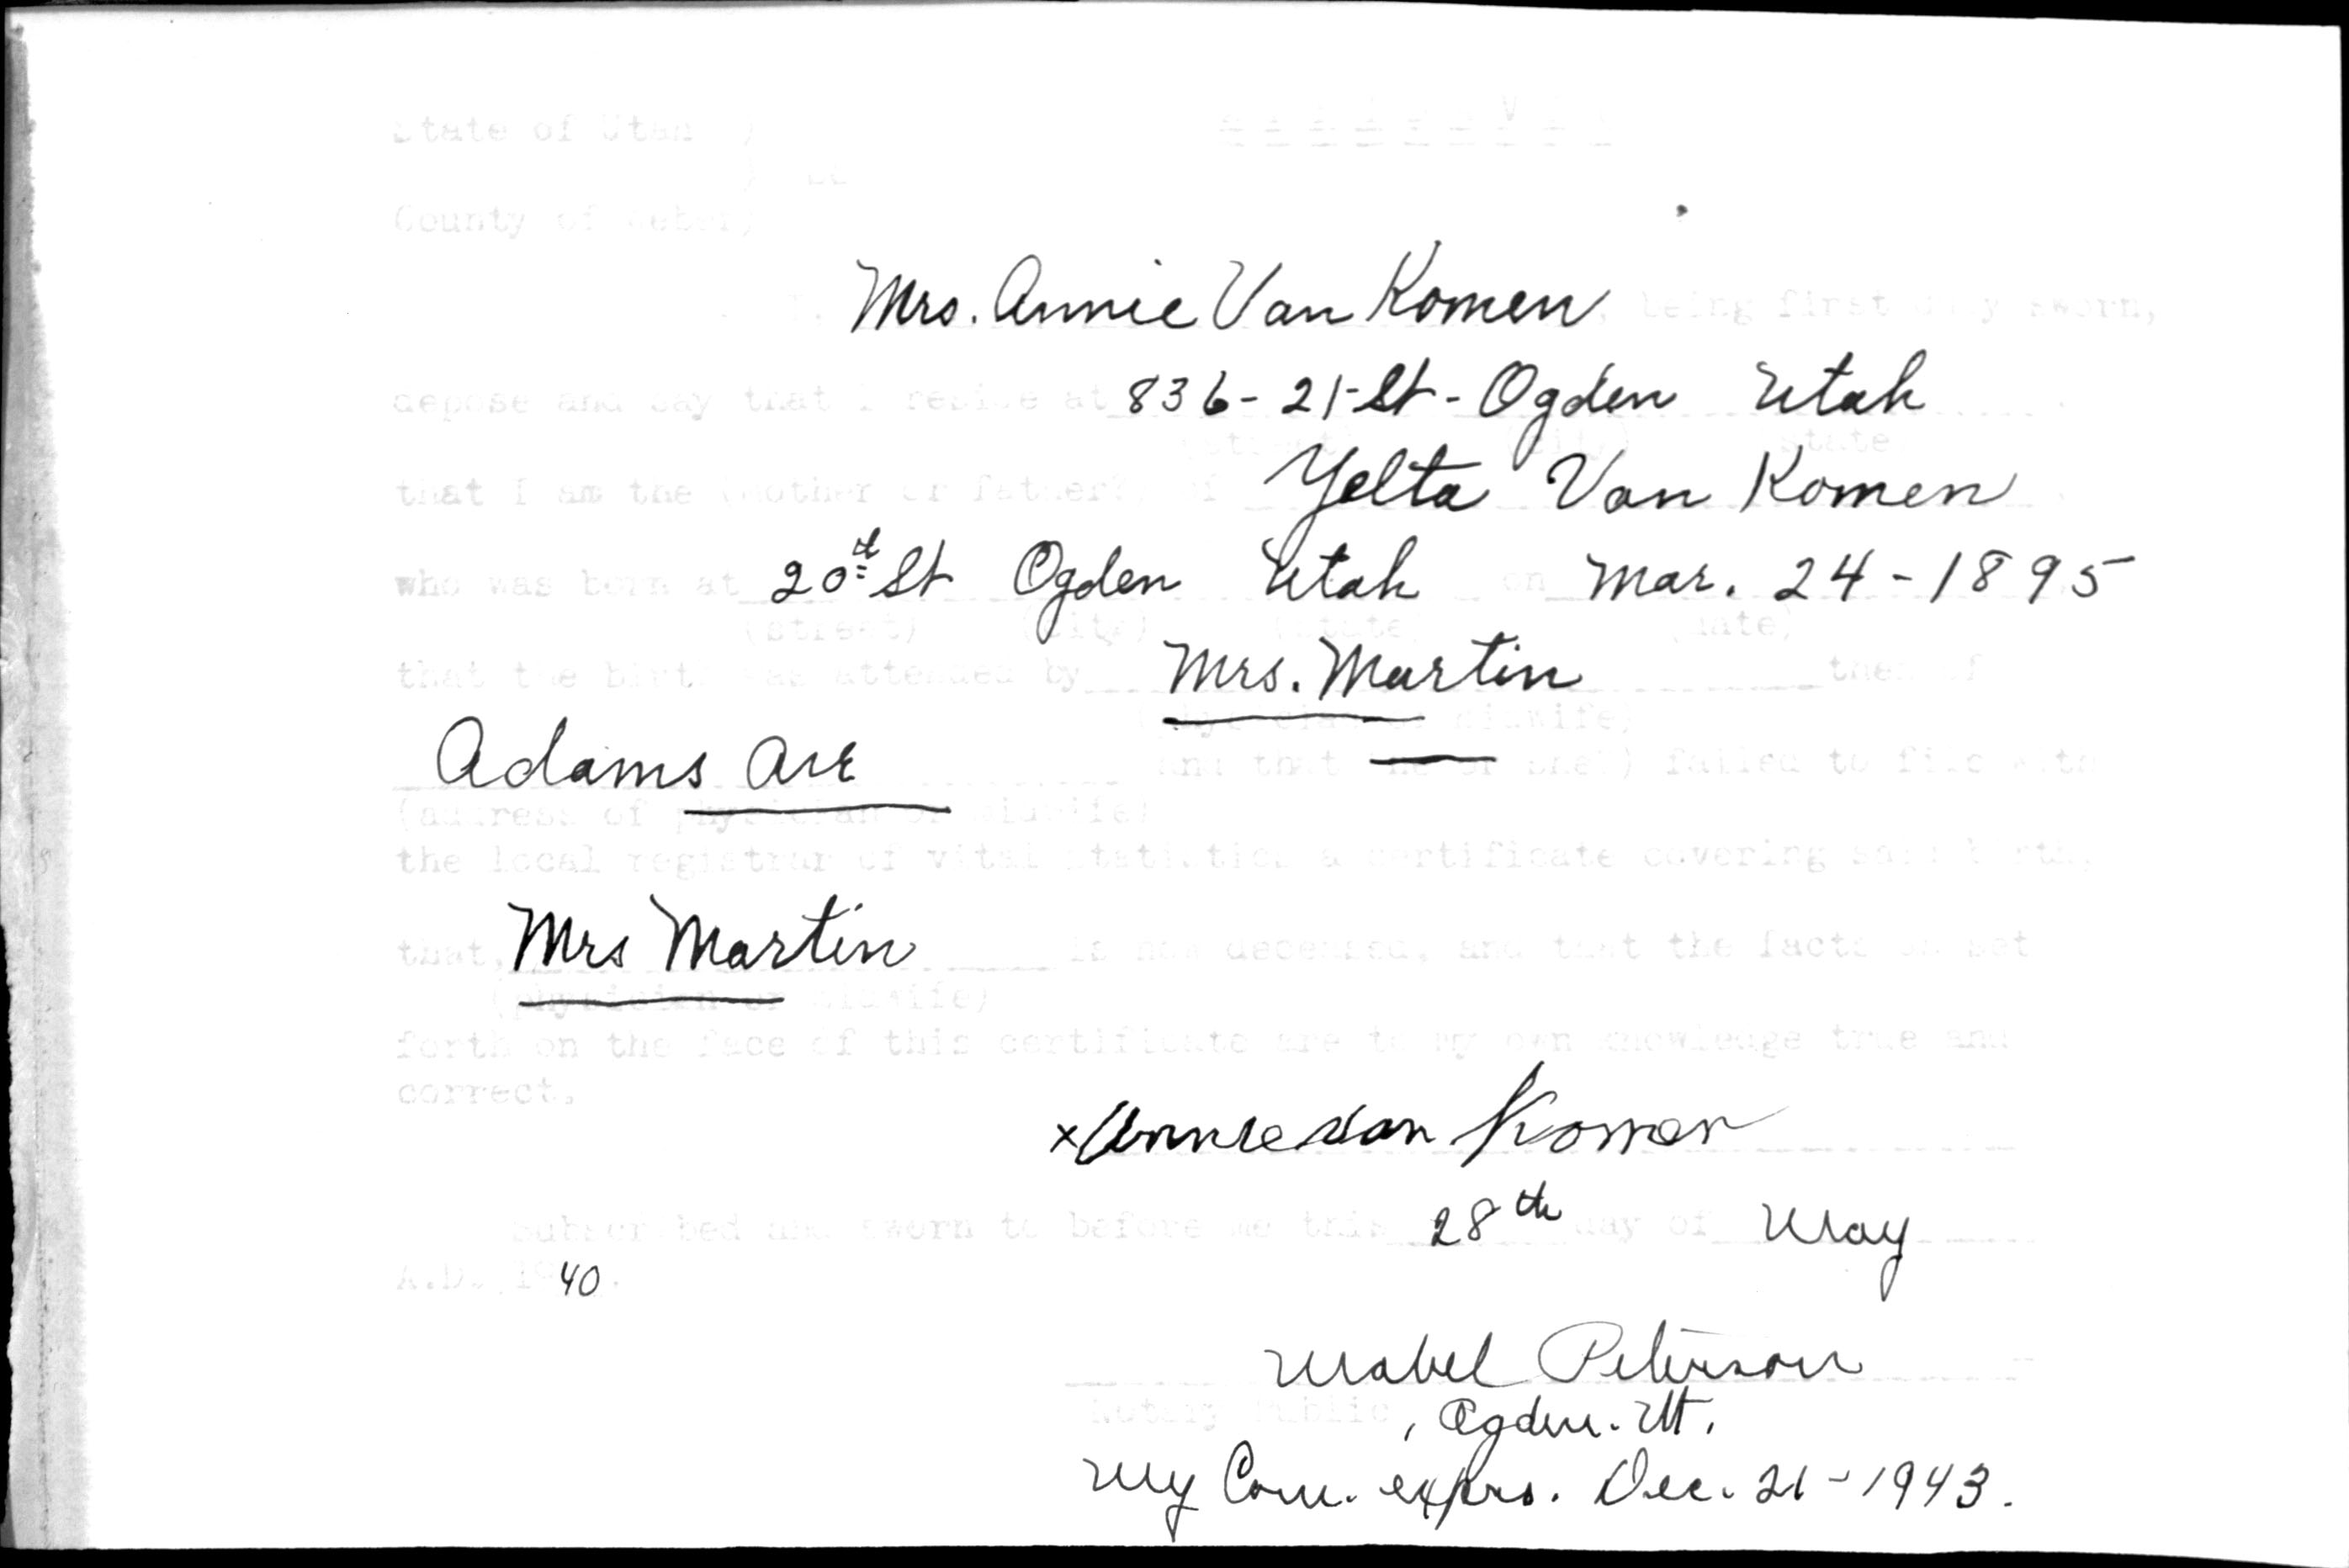 State of Utah )
) ss
County of Weber)
AFFIDAVIT
I, Mrs. Annie Van Komen, being first duly sworn,
depose and say that I reside at 836-21-St-Ogden Utah
(street) (city) state
that I am the (mother or father) of Yelta Van Komen
who was born at 20th St Ogden Utah on Mar. 24-1895
(street) (city) (state) (date)
that the birth was attended by Mrs. Martin then of
(physician or midwife)
Adams Ave and that (he or she) failed to file with
(address of physician or midwife)
the local registrar of vital statistics a certificate covering said birth,
that, Mrs Martin is now deceased, and that the facts as set
(physician or midwife)
forth on the face of this certificate are to my own knowledge true and
correct.
x Annie Van Komen
Subscribed and sworn to before me this 28th day of May
A.D. 1940.
Mabel Peterson
Notary Public, Ogden. Ut.
My Com. exprs. Dec. 21-1943.